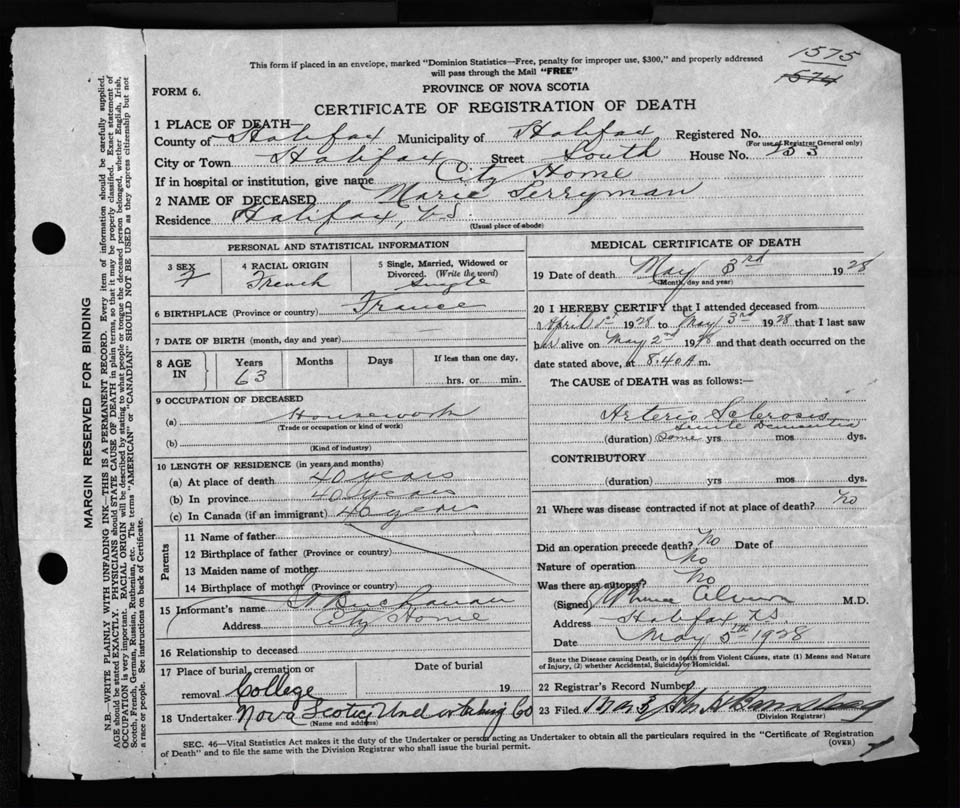 1575
1574
This form if placed in an envelope, marked "Dominion Statistics—Free, penalty for improper use, $300," and properly addressed
will pass through the Mail "FREE"
FORM 6.
PROVINCE OF NOVA SCOTIA
CERTIFICATE OF REGISTRATION OF DEATH
1 PLACE OF DEATH—
County of Halifax Municipality of Halifax Registered No.
(For use of Registrar General only)
City or Town Halifax Street South House No. 153
If in hospital or institution, give name City Home
2 NAME OF DECEASED Marie Perryman
Residence Halifax, N.S.
(Usual place of abode)
PERSONAL AND STATISTICAL INFORMATION
3 SEX F
4 RACIAL ORIGIN French
5 Single, Married, Widowed or Divorced. (Write the word) Single
6 BIRTHPLACE (Province or country) France
7 DATE OF BIRTH (month, day and year)
8 AGE IN Years 63 Months Days If less than one day, hrs. or min.
9 OCCUPATION OF DECEASED
(a) Housework
(Trade or occupation or kind of work)
(b)
(Kind of industry)
10 LENGTH OF RESIDENCE (in years and months)
(a) At place of death 40 years
(b) In province 40 years
(c) In Canada (if an immigrant) 40 years
Parents
11 Name of father
12 Birthplace of father (Province or country)
13 Maiden name of mother
14 Birthplace of mother (Province or country)
15 Informant's name Buchanan
Address City Home
16 Relationship to deceased
17 Place of burial, cremation or removal College
Date of burial 19
18 Undertaker Nova Scotia Undertaking Co
(Name and address)
MEDICAL CERTIFICATE OF DEATH
19 Date of death May 3rd 1928
(Month, day and year)
20 I HEREBY CERTIFY that I attended deceased from
April 1st 1928 to May 3rd 1928 that I last saw
her alive on May 2nd 1928 and that death occurred on the
date stated above, at 8.40 A.m.
The CAUSE of DEATH was as follows:—
Arterio Sclerosis
Senile Dementia
(duration) Some yrs mos dys.
CONTRIBUTORY
(duration) yrs. mos. dys.
21 Where was disease contracted if not at place of death? No
Did an operation precede death? No Date of
Nature of operation No
Was there an autopsy? No
(Signed) M.D.
Address Halifax N.S.
Date May 5th 1928
State the Disease causing Death, or in death from Violent Causes, state (1) Means and Nature
of Injury, (2) whether Accidental, Suicidal or Homicidal.
22 Registrar's Record Number
23 Filed
(Division Registrar)
SEC. 46—Vital Statistics Act makes it the duty of the Undertaker or person acting as Undertaker to obtain all the particulars required in the "Certificate of Registration
of Death" and to file the same with the Division Registrar who shall issue the burial permit.
(OVER)
MARGIN RESERVED FOR BINDING
N.B.—WRITE PLAINLY WITH UNFADING INK—THIS IS A PERMANENT RECORD. Every item of information should be carefully supplied.
AGE should be stated EXACTLY. PHYSICIANS should STATE CAUSE OF DEATH in plain terms, so that it may be properly classified. Exact statement of
OCCUPATION is very important. RACIAL ORIGIN will be described by stating to what people or tongue the deceased person belonged, whether English, Irish,
Scotch, French, German, Russian, Ruthenian, etc. The terms "AMERICAN" or "CANADIAN" SHOULD NOT BE USED as they express citizenship but not
a race or people. See instructions on back of Certificate.